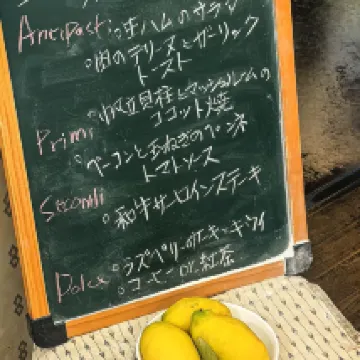 Antipasti 。生ハムのサラダ
。鴨のテリーヌとガーリック
トースト
。帆立貝柱とマッシュルームの
ココット焼
Primi
。ベーコンと玉ねぎのペンネ
トマトソース
Secondi
。和牛サーロインステーキ
Dolce 。ラズベリーのケーキ・キウイ
。コーヒー or 紅茶